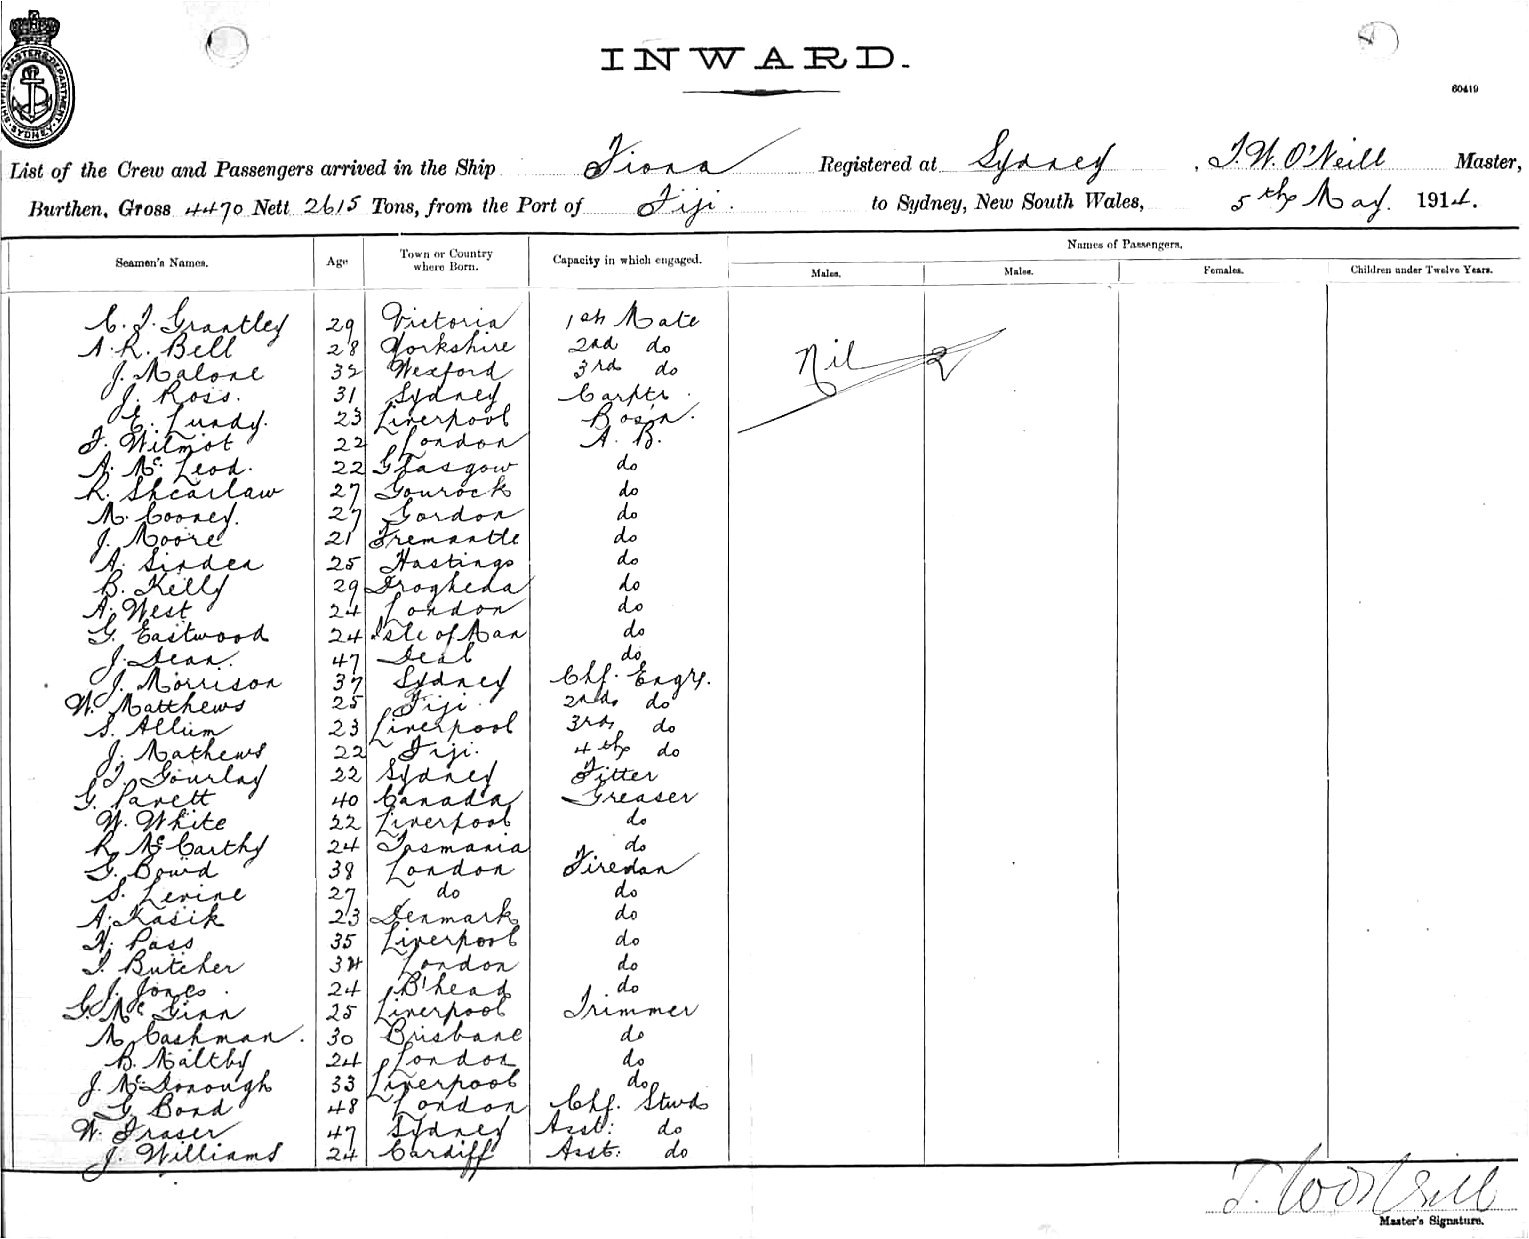 SHIPPING MASTERS DEPARTMENT SYDNEY
INWARD.
60419
List of the Crew and Passengers arrived in the Ship Fiona Registered at Sydney, T.W. O'Neill Master,
Burthen, Gross 4470 Nett 2615 Tons, from the Port of Fiji. to Sydney, New South Wales, 5th May. 1914.
Names of Passengers.
Seamen's Names. Age Town or Country where Born. Capacity in which engaged. Males. Males. Females. Children under Twelve Years.
C. J. Grantley 29 Victoria 1st Mate
A. R. Bell 28 Yorkshire 2nd do Nil
J. Malone 32 Wexford 3rd do
J. Ross. 31 Sydney Carptr.
E. Lundy. 23 Liverpool Bos'n.
J. Wilmot 22 London A. B.
A. McLeod. 22 Glasgow do
R. Shearlaw 27 Gourock do
M. Cooney. 27 Gordon do
J. Moore 21 Fremantle do
A. Sinden 25 Hastings do
B. Kelly 29 Drogheda do
A. West 24 London do
G. Eastwood 24 Isle of Man do
J. Dean. 47 Deal do
J. Morrison 37 Sydney Chf. Engr.
W. Matthews 25 Fiji. 2nd do
S. Allum 23 Liverpool 3rd do
J. Mathews 22 Fiji. 4th do
J. Gourlay 22 Sydney Fitter
G. Parett 40 Canada Greaser
W. White 22 Liverpool do
R. McCarthy 24 Tasmania do
G. Bowd 38 London Fireman
S. Levine 27 do do
A. Kasik 23 Denmark do
H. Pass 35 Liverpool do
J. Butcher 34 London do
J. Jones. 24 B'head do
G. McGinn 25 Liverpool Trimmer
M Cashman. 30 Brisbane do
B. Maltby 24 London do
J. McDonough 33 Liverpool do
G. Bond 48 London Chf. Stwd
W. Fraser 47 Sydney Asst: do
J. Williams 24 Cardiff Asst: do
T. W O'Neill
Master's Signature.